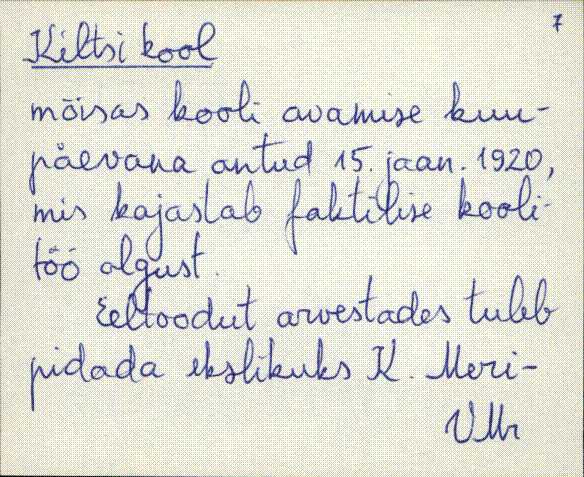 7
Kiltsi kool
mõisas kooli avamise kuu-
päevana antud 15. jaan. 1920,
mis kajastab faktilise kooli-
töö algust.
Eeltoodut arvestades tuleb
pidada ekslikuks K. Meri-